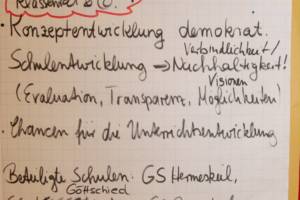 Klassenrat & Co.
• Konzeptentwicklung demokrat.
Verbindlichkeit/
Schulentwicklung → Nachhaltigkeit!
Visionen
(Evaluation, Transparenz, Möglichkeiten)
• Chancen für die Unterrichtsentwicklung
Beteiligte Schulen: GS Hermeskeil,
Gottschied